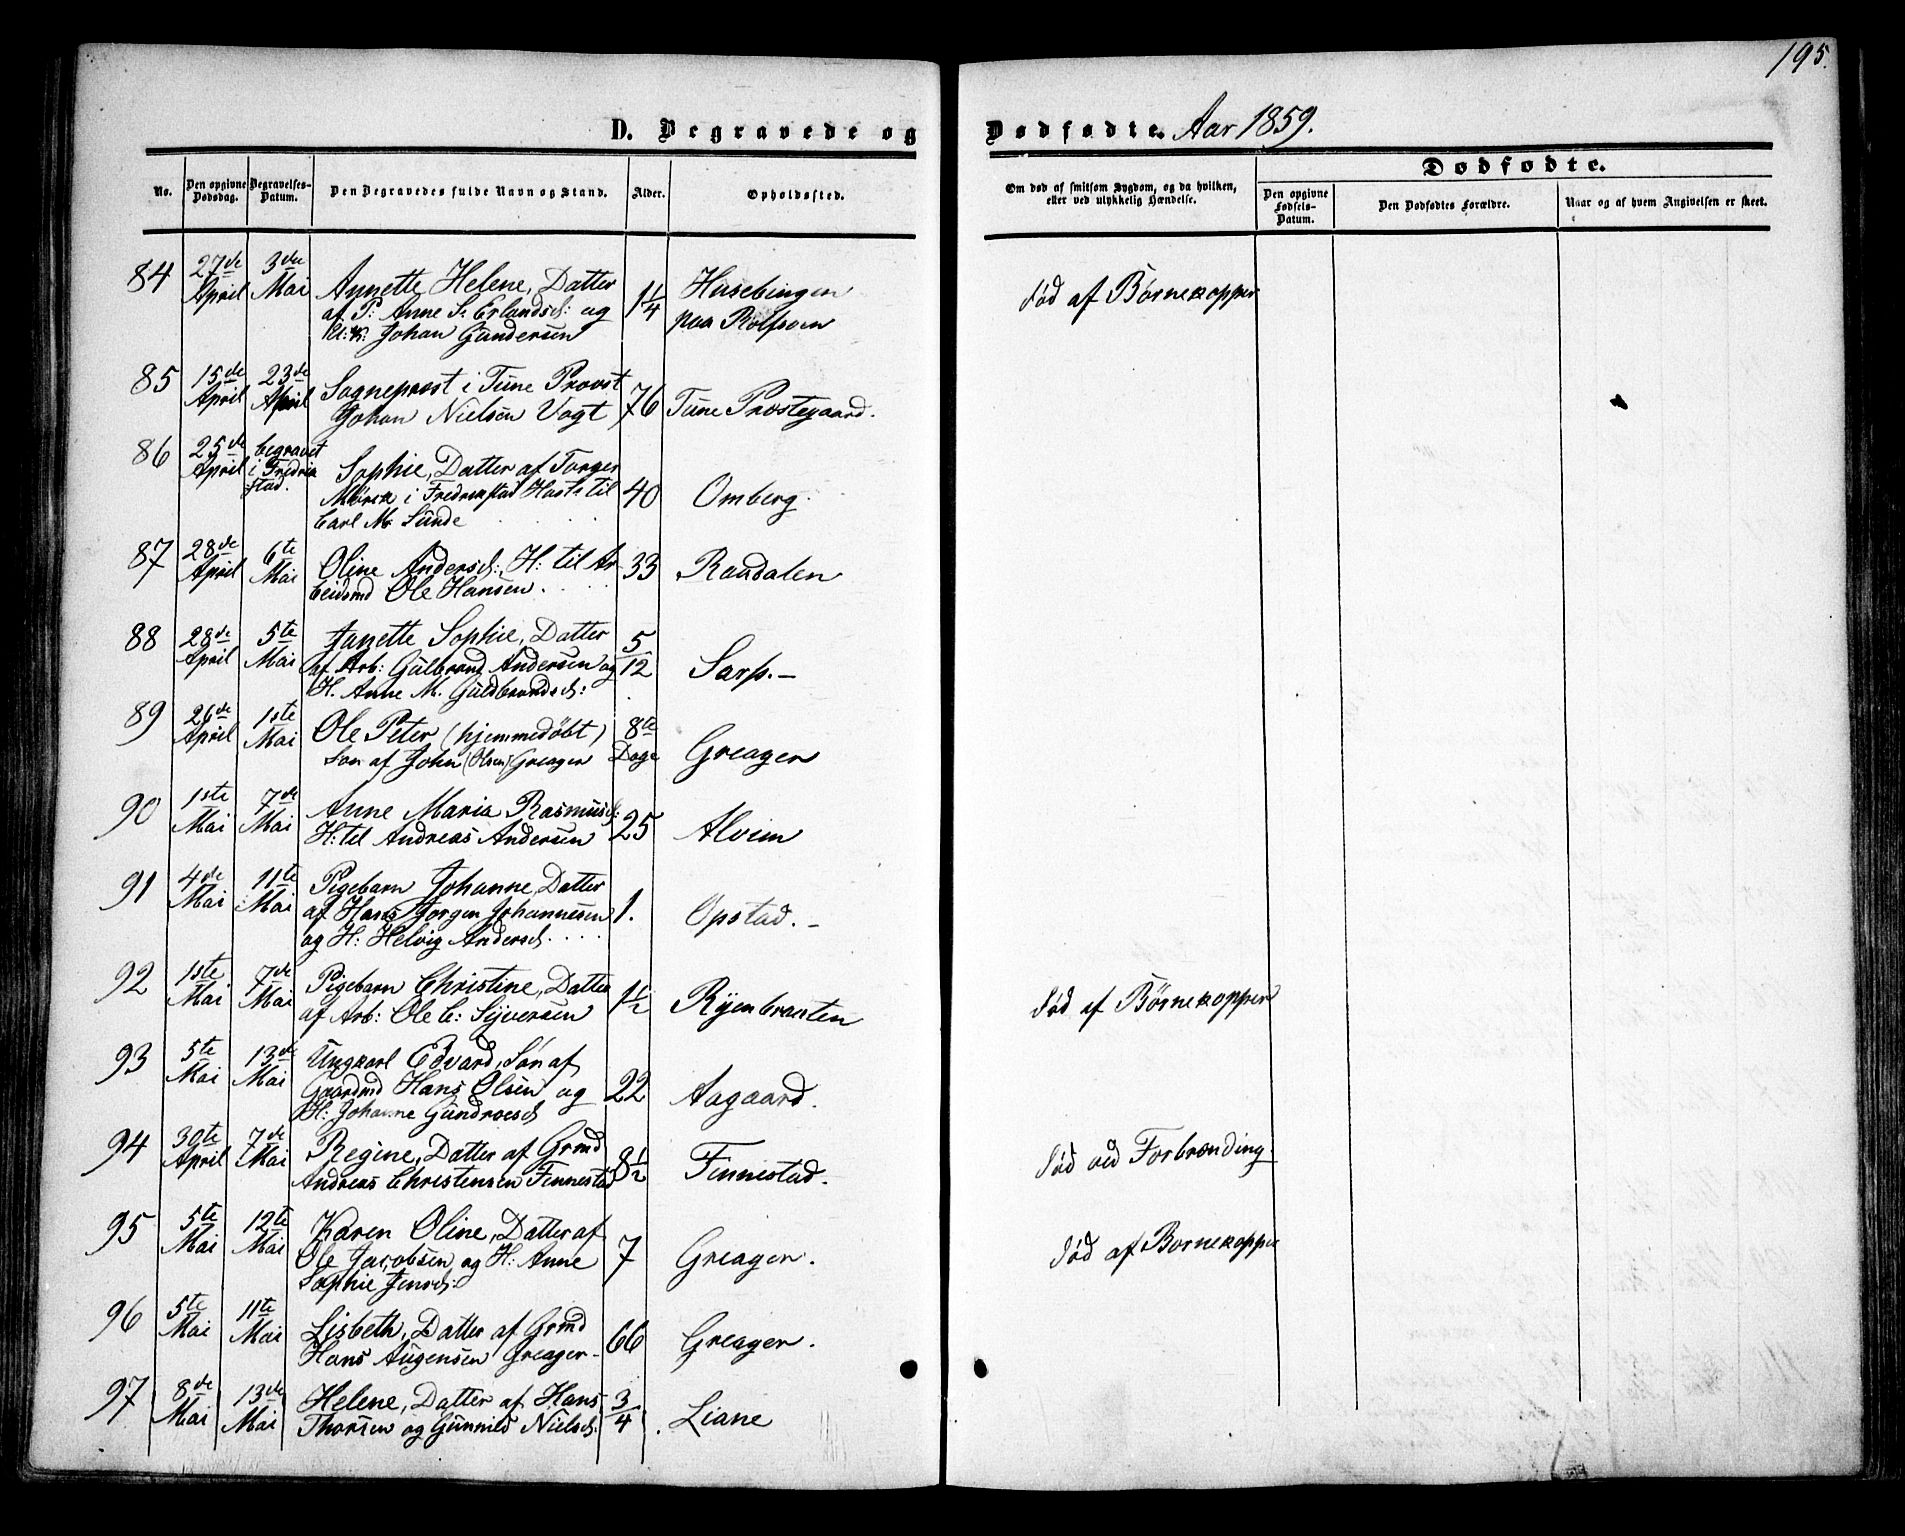 195.
D. Begravede og Dødfødte. Aar 1859.
Dødfødte.
No. Den opgivne Dødsdag. Begravelses-Datum. Den Begravedes fulde Navn og Stand. Alder. Opholdssted. Om død af smitsom Sygdom, og da hvilken, eller ved ulykkelig Hændelse. Den opgivne Fødsels-Datum. Den Dødfødtes Forældre. Naar og af hvem Angivelsen er skeet.
84 27de April 3die Mai Annette Helene, Datter
af P: Anne S. Erlandsd: og
Johan Gundersen 1 1/4 Husebingen
paa Rolfsøen død af Børnekopper
85 15de April 23de April Sogneprest i Tune Provst
Johan Nielsen Vogt 76 Tune Prostegaard.
86 25de April begravet
i Fredrik
stad. Sophie, Datter af Torger
Mørck i Fredrikstad Hustr til
Carl M. Sunde 40 Omberg.
87 28de April 6te Mai Oline Andersd: H: til Ar
beidsmd Ole Hansen. 33 Raudalen
88 28de April 5te Mai Janette Sophie, Datter
af Arb: Gulbrand Andersen og
H. Anne M. Guldbrandsd: 5/12 Sarp. –
89 26de April 1ste Mai Ole Peter (hjemmedøbt)
Søn af John (Olsen) Greager 8te Dage Greager
90 1ste Mai 7de Mai Anne Maria Rasmusd:
H: til Andreas Andersen 25 Alvim
91 4de Mai 11te Mai Pigebarn Johanne, Datter
af Hans Jørgen Johannesen
og H: Helvig Andersd. 1. Opstad. –
92 1ste Mai 7de Mai Pigebarn Christine, Datter
af Arb: Ole C: Syversen 1 1/2 Ryenbraaten død af Børnekopper
93 5te Mai 13de Mai Ungkarl Edvard, Søn af
Gaardmd Hans Olsen og
H: Johanne Gundroesd 22 Aagaard.
94 30te April 7de Mai Regine, Datter af Grmd
Andreas Christensen Finnestad 8 1/2 Finnestad. død ved Forbrænding.
95 5te Mai 12te Mai Karen Oline, Datter af
Ole Jacobsen og H: Anne
Sophie Jensd: 7 Greager. død af Børnekopper
96 5te Mai 11te Mai Lisbeth, Datter af Grmd
Hans Augensen Greager– 66 Greager.
97 8de Mai 13de Mai Helene, Datter af Hans
Thorsen og Gunnild Nielsd: 3/4 Liane